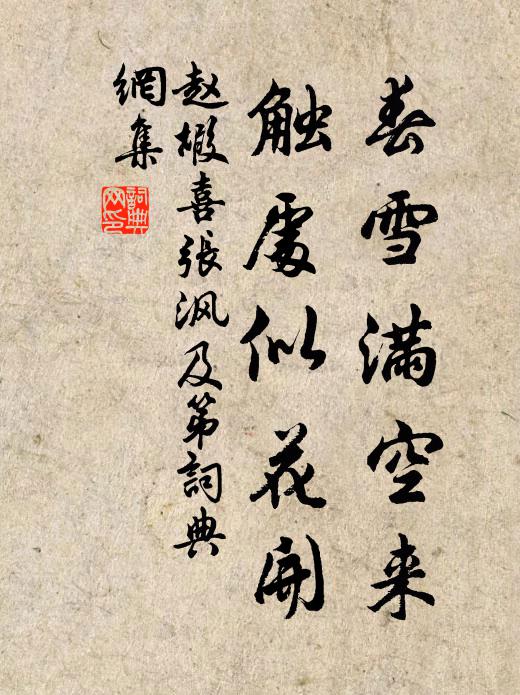 春雪满空来
触处似花开
赵嘏喜張沨及第詞典
網集
詞典
网印